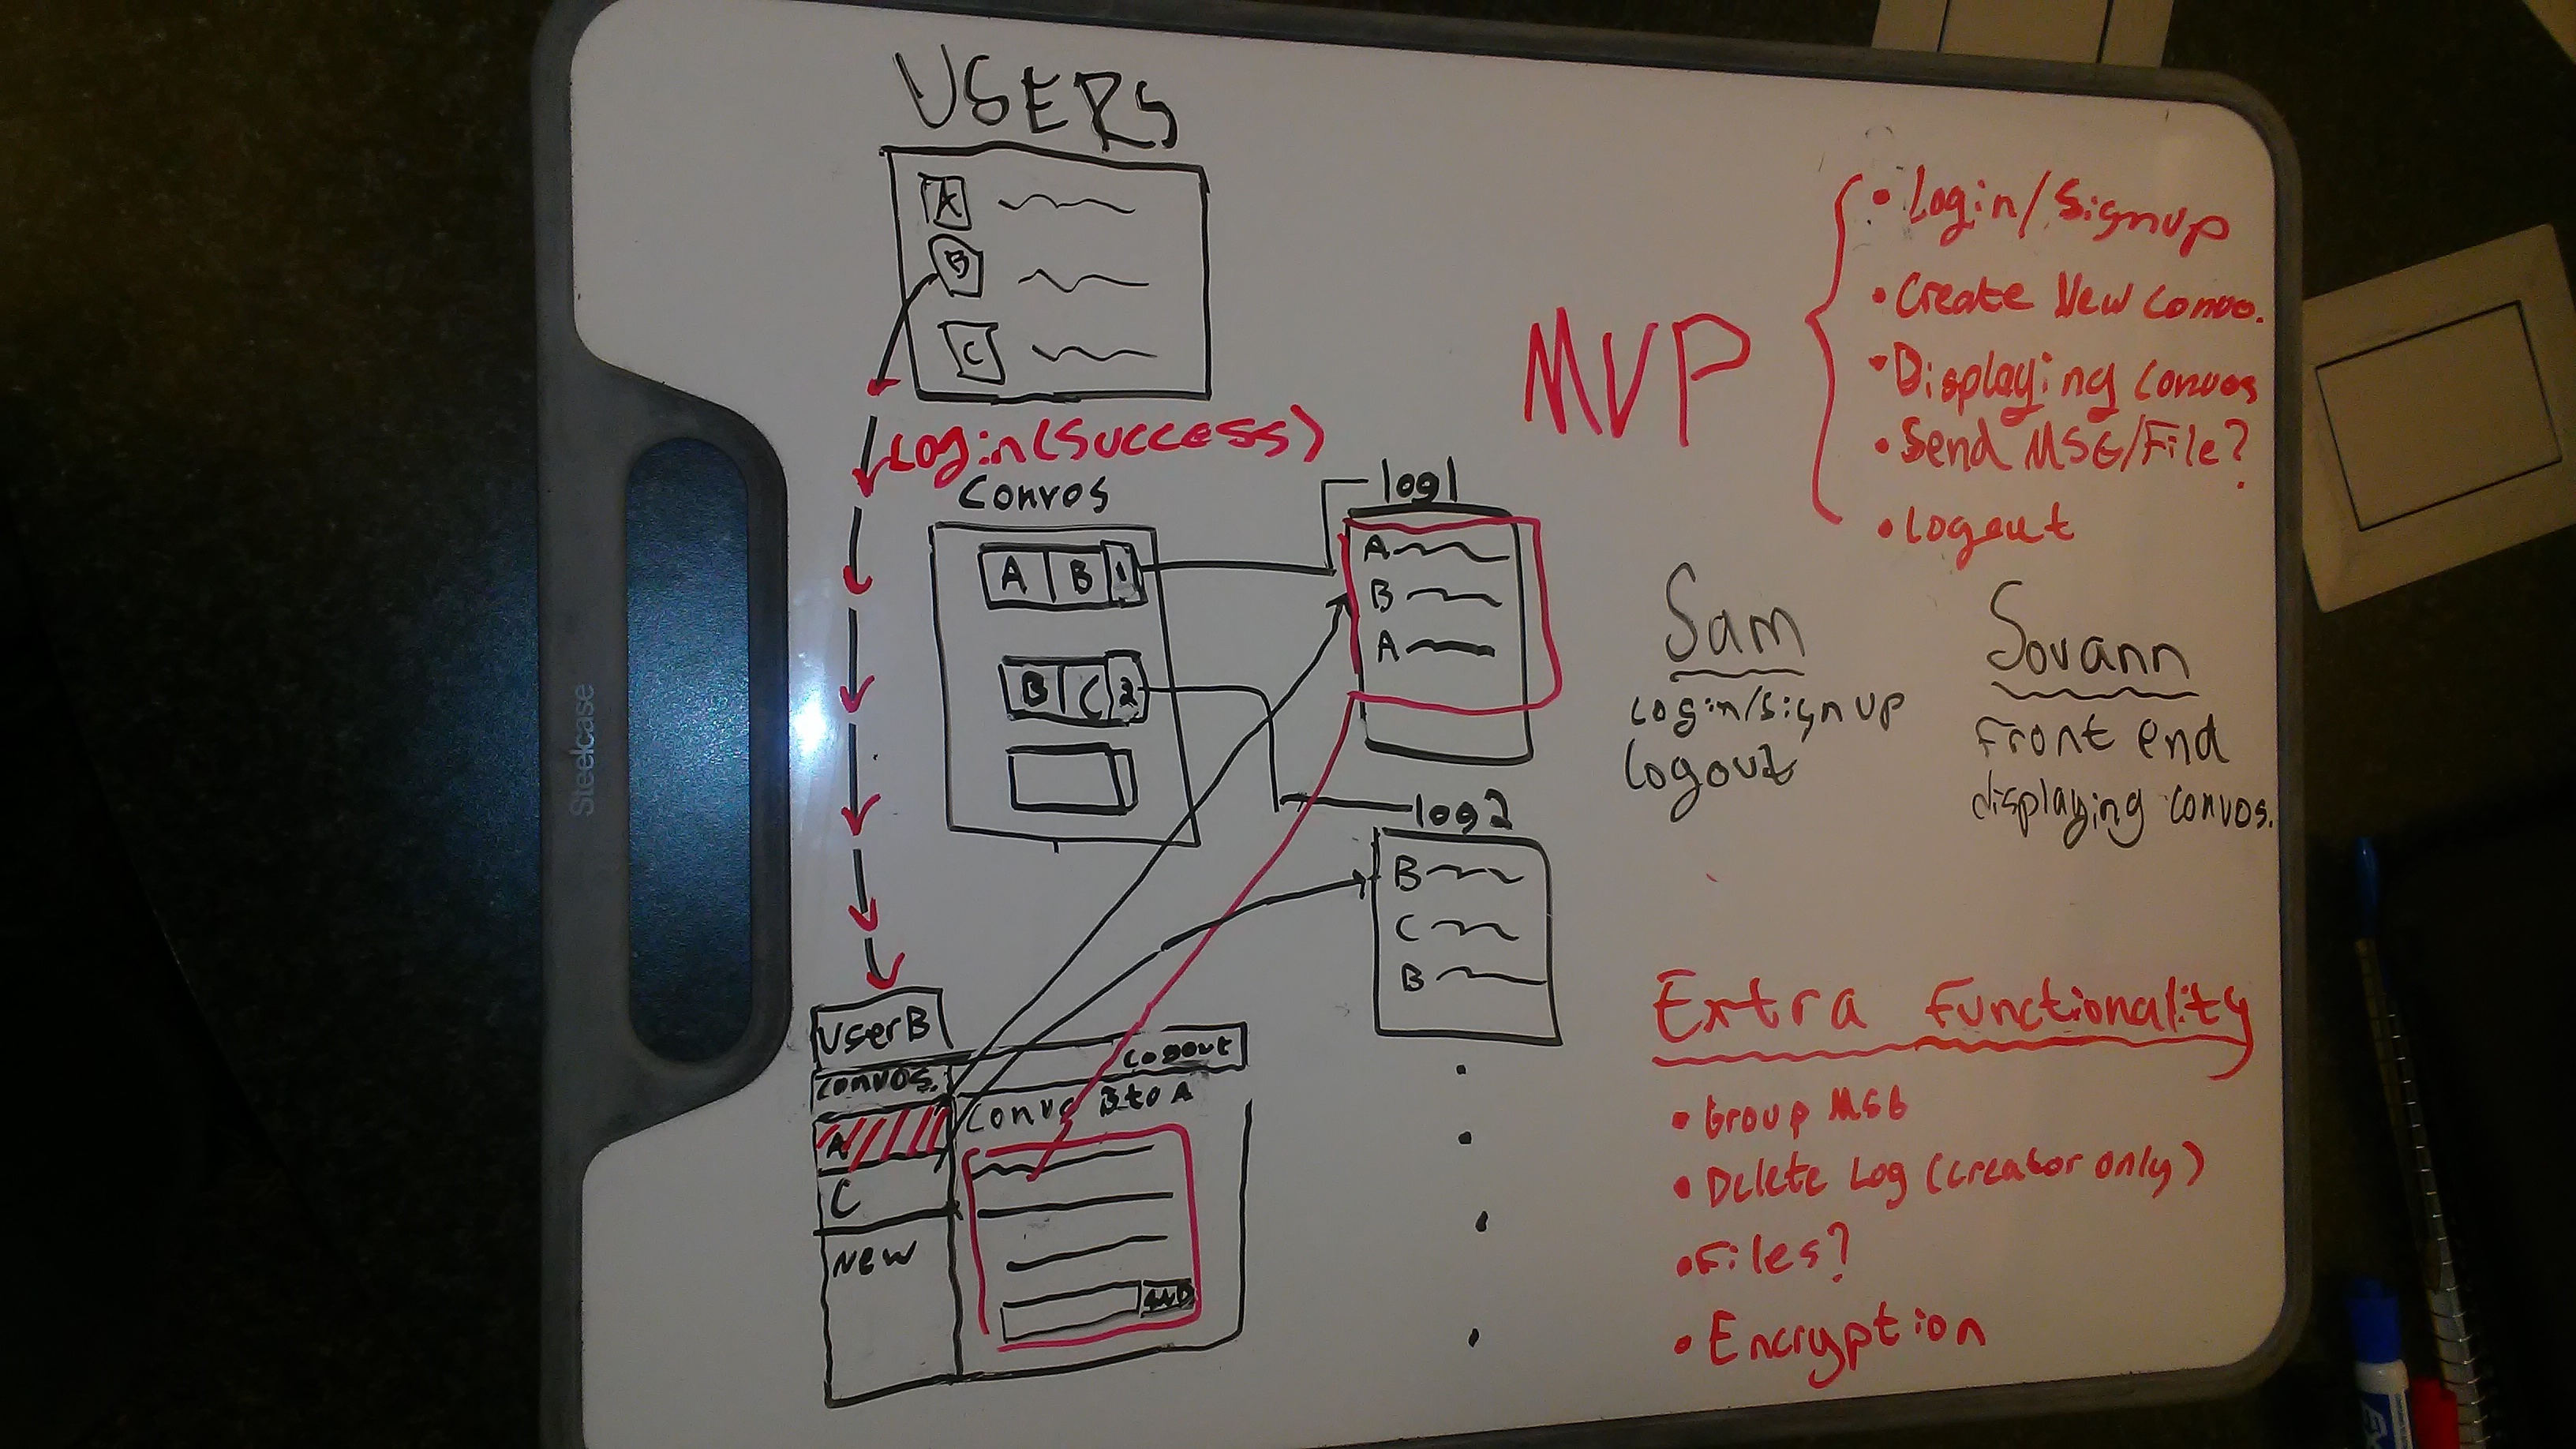 USERS
A
B
C
Login(Success)
Convos
A B 1
B C 2
log1
A
B
A
log2
B
C
B
UserB
Logout
convos.
A
C
New
Convo B to A
MVP
• Login/Signup
• Create New Convo.
• Displaying Convos
• Send MSG/File?
• Logout
Sam
Login/Signup
Logout
Sovann
Front end
displaying convos.
Extra Functionality
• Group MSG
• Delete Log (creator only)
• Files?
• Encryption
Steelcase